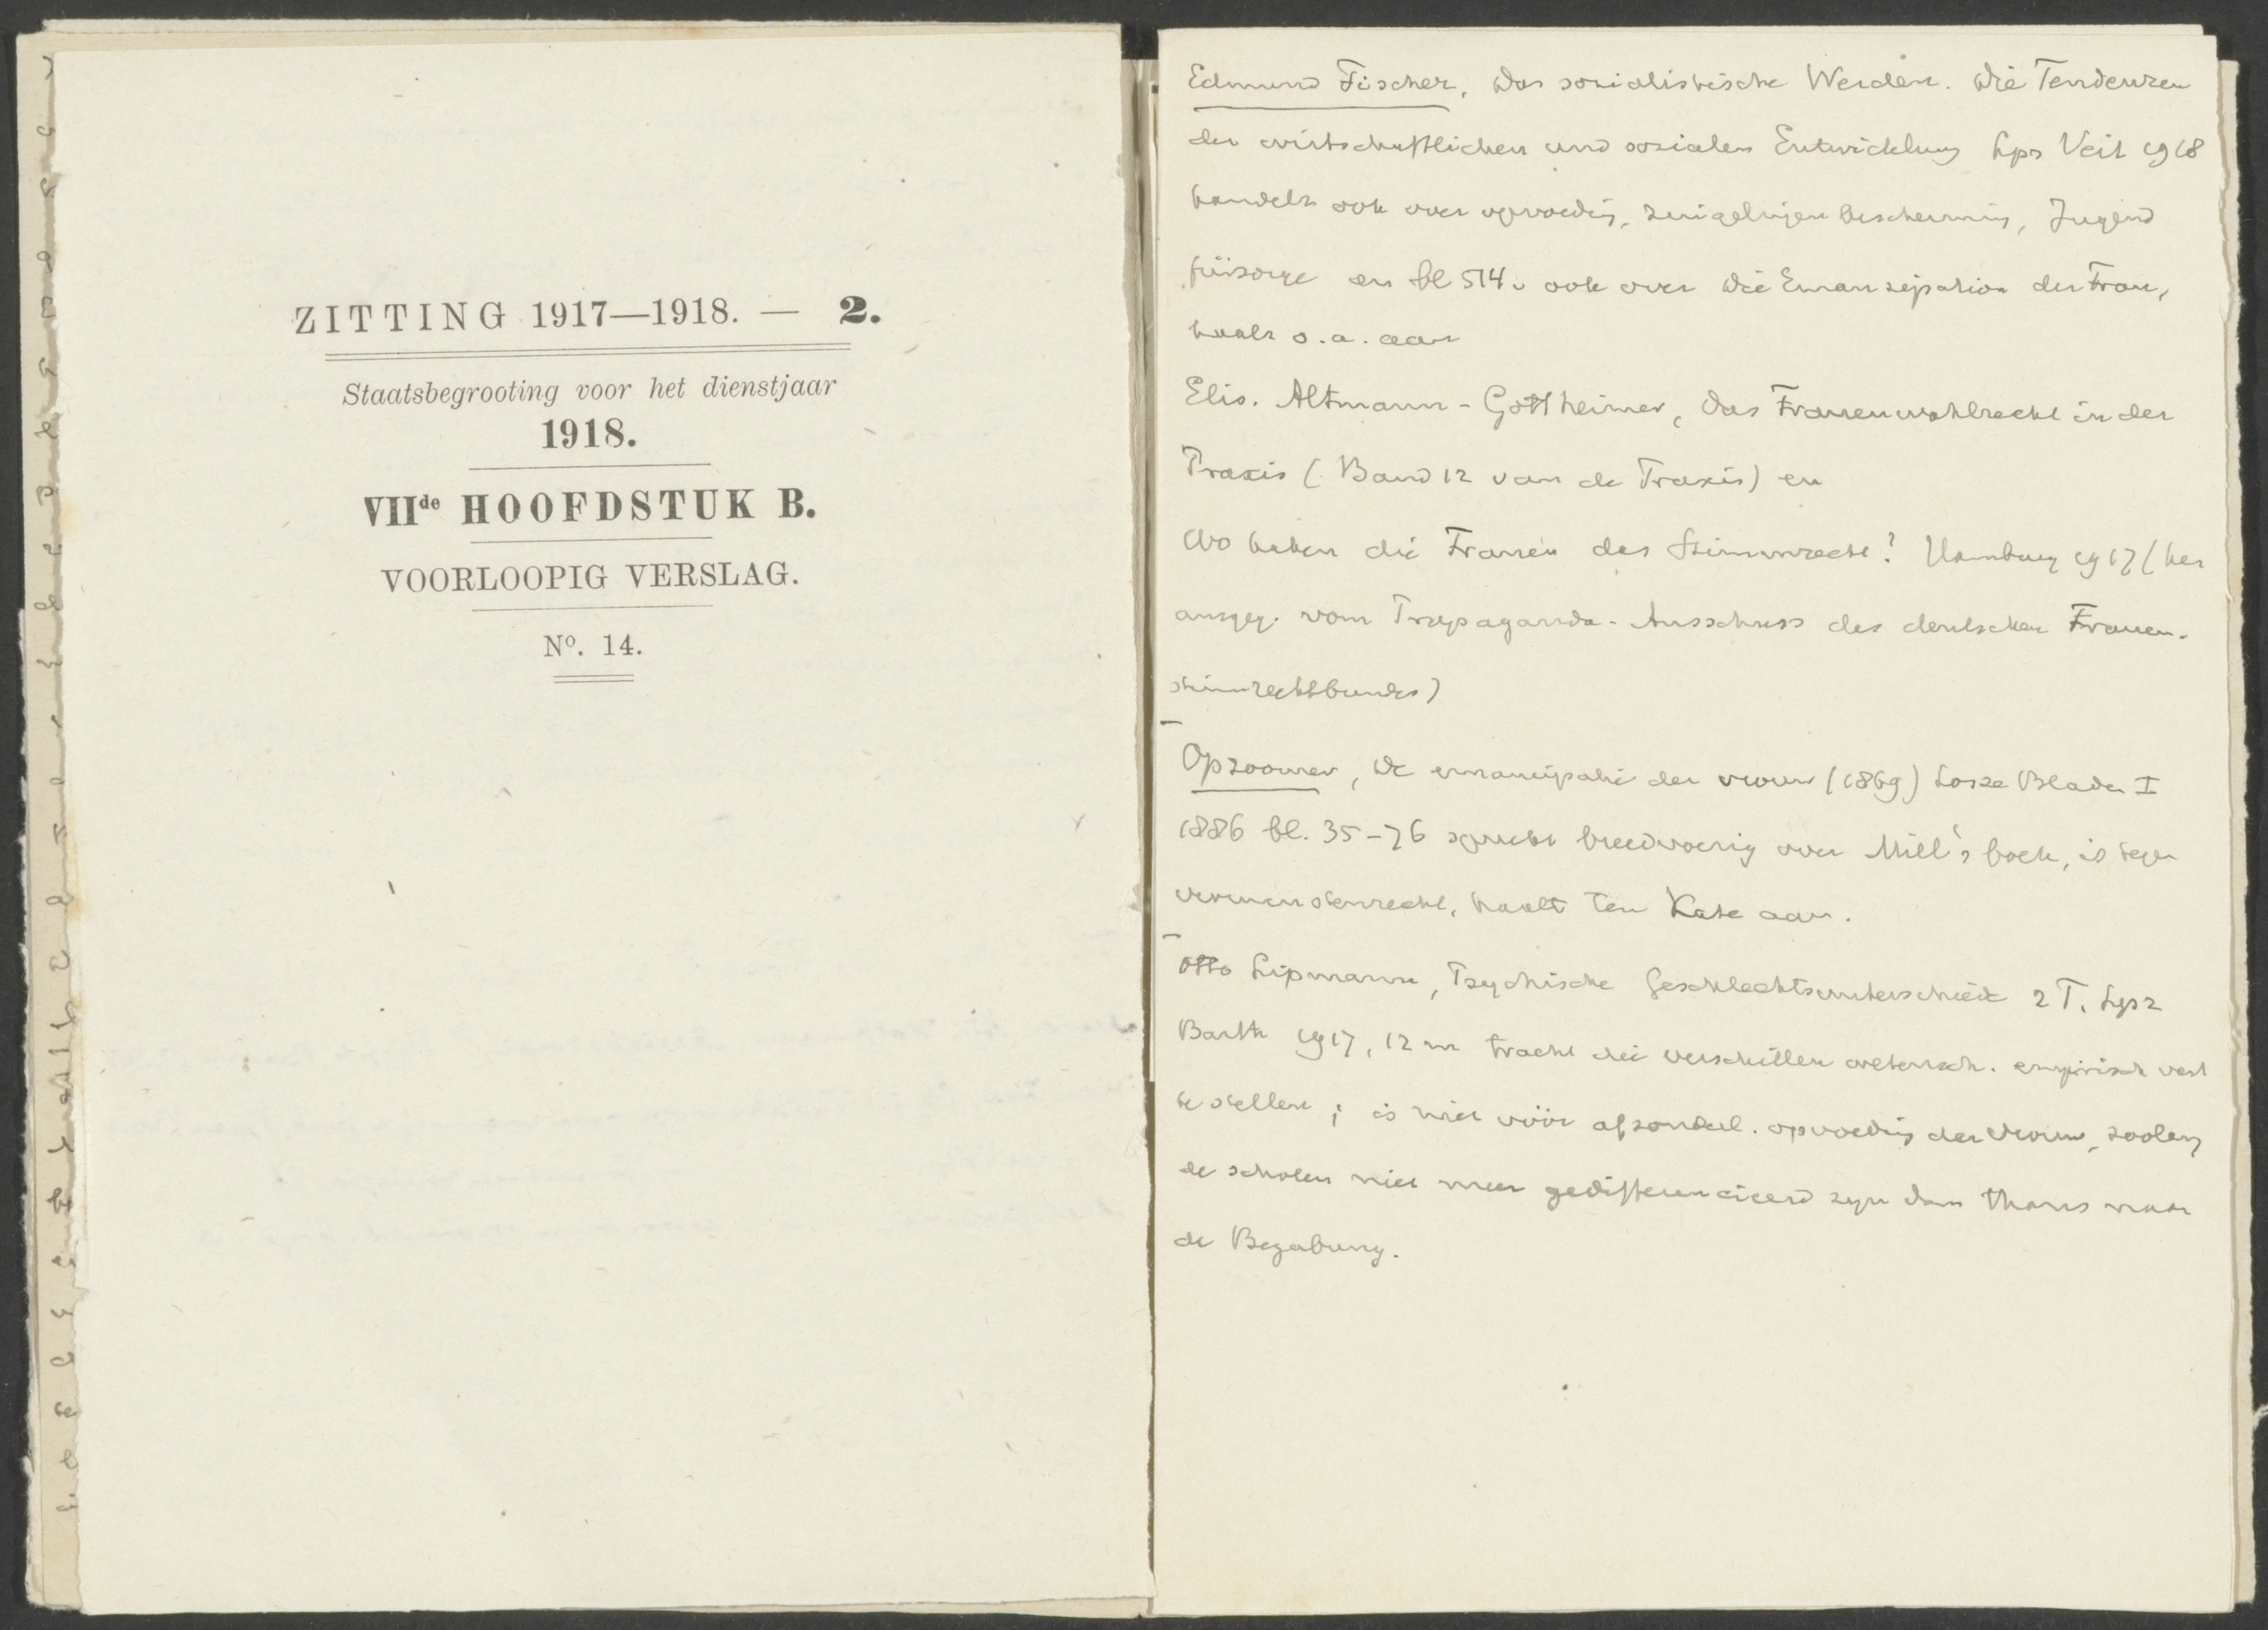 ZITTING 1917—1918. — 2.
Staatsbegrooting voor het dienstjaar
1918.
VIIde HOOFDSTUK B.
VOORLOOPIG VERSLAG.
No. 14.
Edmund Fischer, Das sozialistische Werden. Die Tendenzen
der wirtschaftlichen und sozialen Entwicklung Lpz Veit 1918
handelt ook over opvoeding, zuigelingenbescherming, Jugend
fürsorge en bl 514v ook over die Emanzipation der Frau,
haalt o.a. aan
Elis. Altmann-Gottheimer, Das Frauenwahlrecht in der
Praxis (Band 12 van de Praxis) en
Wo haben die Frauen das Stimmrecht? Hamburg 1917 (her
ausgeg. vom Propaganda-Ausschuss des deutschen Frauen-
stimmrechtbundes)
Opzoomer, De emancipatie der vrouw (1869) Losse Bladen I
1886 bl. 35-76 spreekt breedvoerig over Mill's boek, is tegen
vrouwenstemrecht, haalt Ten Kate aan.
Otto Lipmann, Psychische Geschlechtsunterschiede 2 T. Lpz
Barth 1917, 12 m tracht die verschillen wetensch. empirisch vast
te stellen; is niet vóór afzonderl. opvoeding der vrouw, zoolang
de scholen niet meer gedifferencieerd zyn dan thans naar
de Begabung.